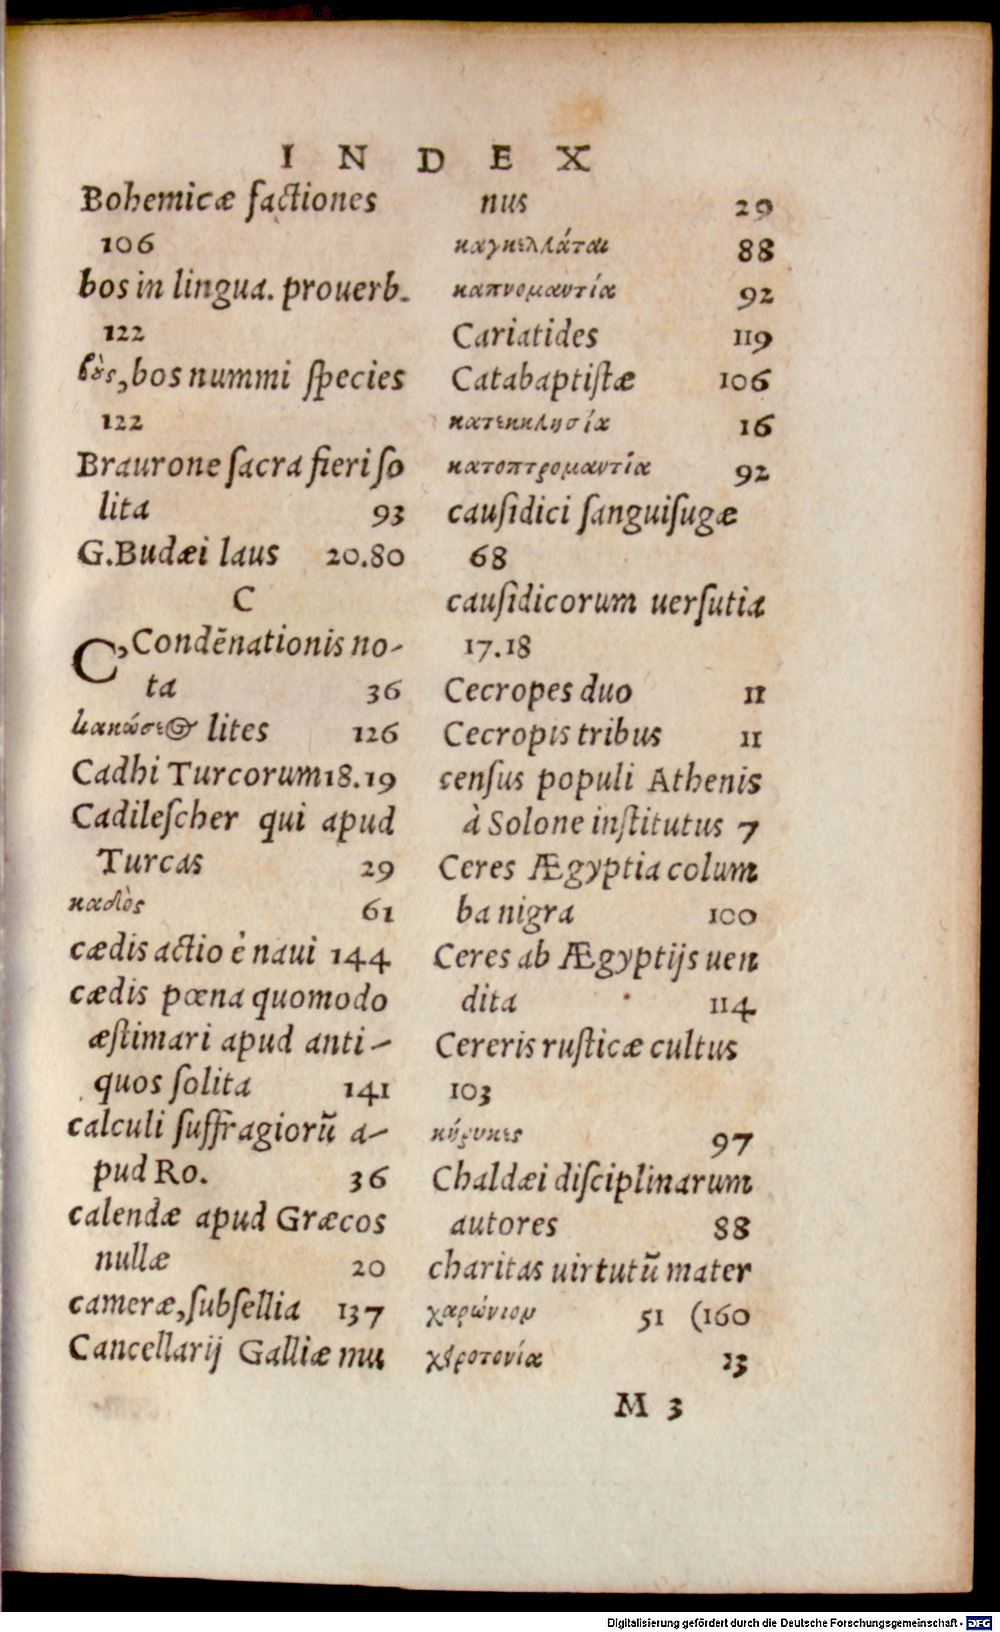 INDEX
Bohemicæ factiones
106
bos in lingua. prouerb.
122
βȣ̀ς, bos nummi species
122
Braurone sacra fieri so
lita 93
G. Budæi laus 20.80
C
C, Condēnationis no-
ta 36
κακώσεως lites 126
Cadhi Turcorum 18.19
Cadilescher qui apud
Turcas 29
καδὸς 61
cædis actio è naui 144
cædis pœna quomodo
æstimari apud anti-
quos solita 141
calculi suffragiorũ a-
pud Ro. 36
calendæ apud Græcos
nullæ 20
cameræ, subsellia 137
Cancellarij Galliæ mu
nus 29
καγκελλάται 88
καπνομαντία 92
Cariatides 119
Catabaptistæ 106
κατεκκλησία 16
κατοπτρομαντία 92
causidici sanguisugæ
68
causidicorum uersutia
17.18
Cecropes duo 11
Cecropis tribus 11
census populi Athenis
à Solone institutus 7
Ceres Ægyptia colum
ba nigra 100
Ceres ab Ægyptijs uen
dita 114
Cereris rusticæ cultus
103
κήρυκες 97
Chaldæi disciplinarum
autores 88
charitas uirtutũ mater
χαρώνιον 51 (160
χειροτονία 23
M 3
Digitalisierung gefördert durch die Deutsche Forschungsgemeinschaft - DFG